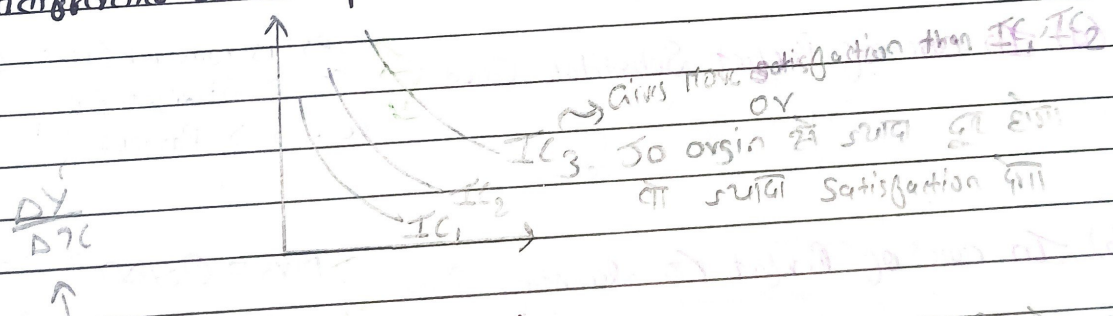 Gives More satisfaction than IC₁, IC₂
OR
IC₃ Jo orgin से ज्यादा दूर होगा
वो ज्यादा satisfaction देगा
IC₂
IC₁
ΔY
Δx